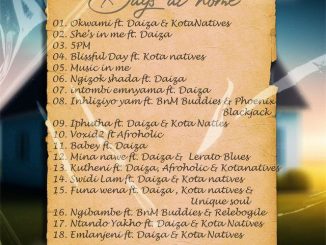 Days at home
01. Okwami ft. Daiza & KotaNatives
02. She's in me ft. Daiza
03. 5PM
04. Blissful Day ft. Kota natives
05. Music in me
06. Ngizok shada ft. Daiza
07. intombi emnyama ft. Daiza
08. Inhliziyo yam ft. BnM Buddies & Phoenix
Blackjack
09. Iphutha ft. Daiza & Kota Naties
10. Voxid2 ft Afroholic
11. Babey ft. Daiza
12. Mina nawe ft. Daiza & Lerato Blues
13. Kutheni ft. Daiza, Afroholic & Kotanatives
14. Swidi Lam ft. Daiza & Kota natives
15. Funa wena ft. Daiza , Kota natives &
Unique soul
16. Ngibambe ft. BnM Buddies & Relebogile
17. Ntando Yakho ft. Daiza & Kota Natives
18. Emlanjeni ft. Daiza & Kota Natives